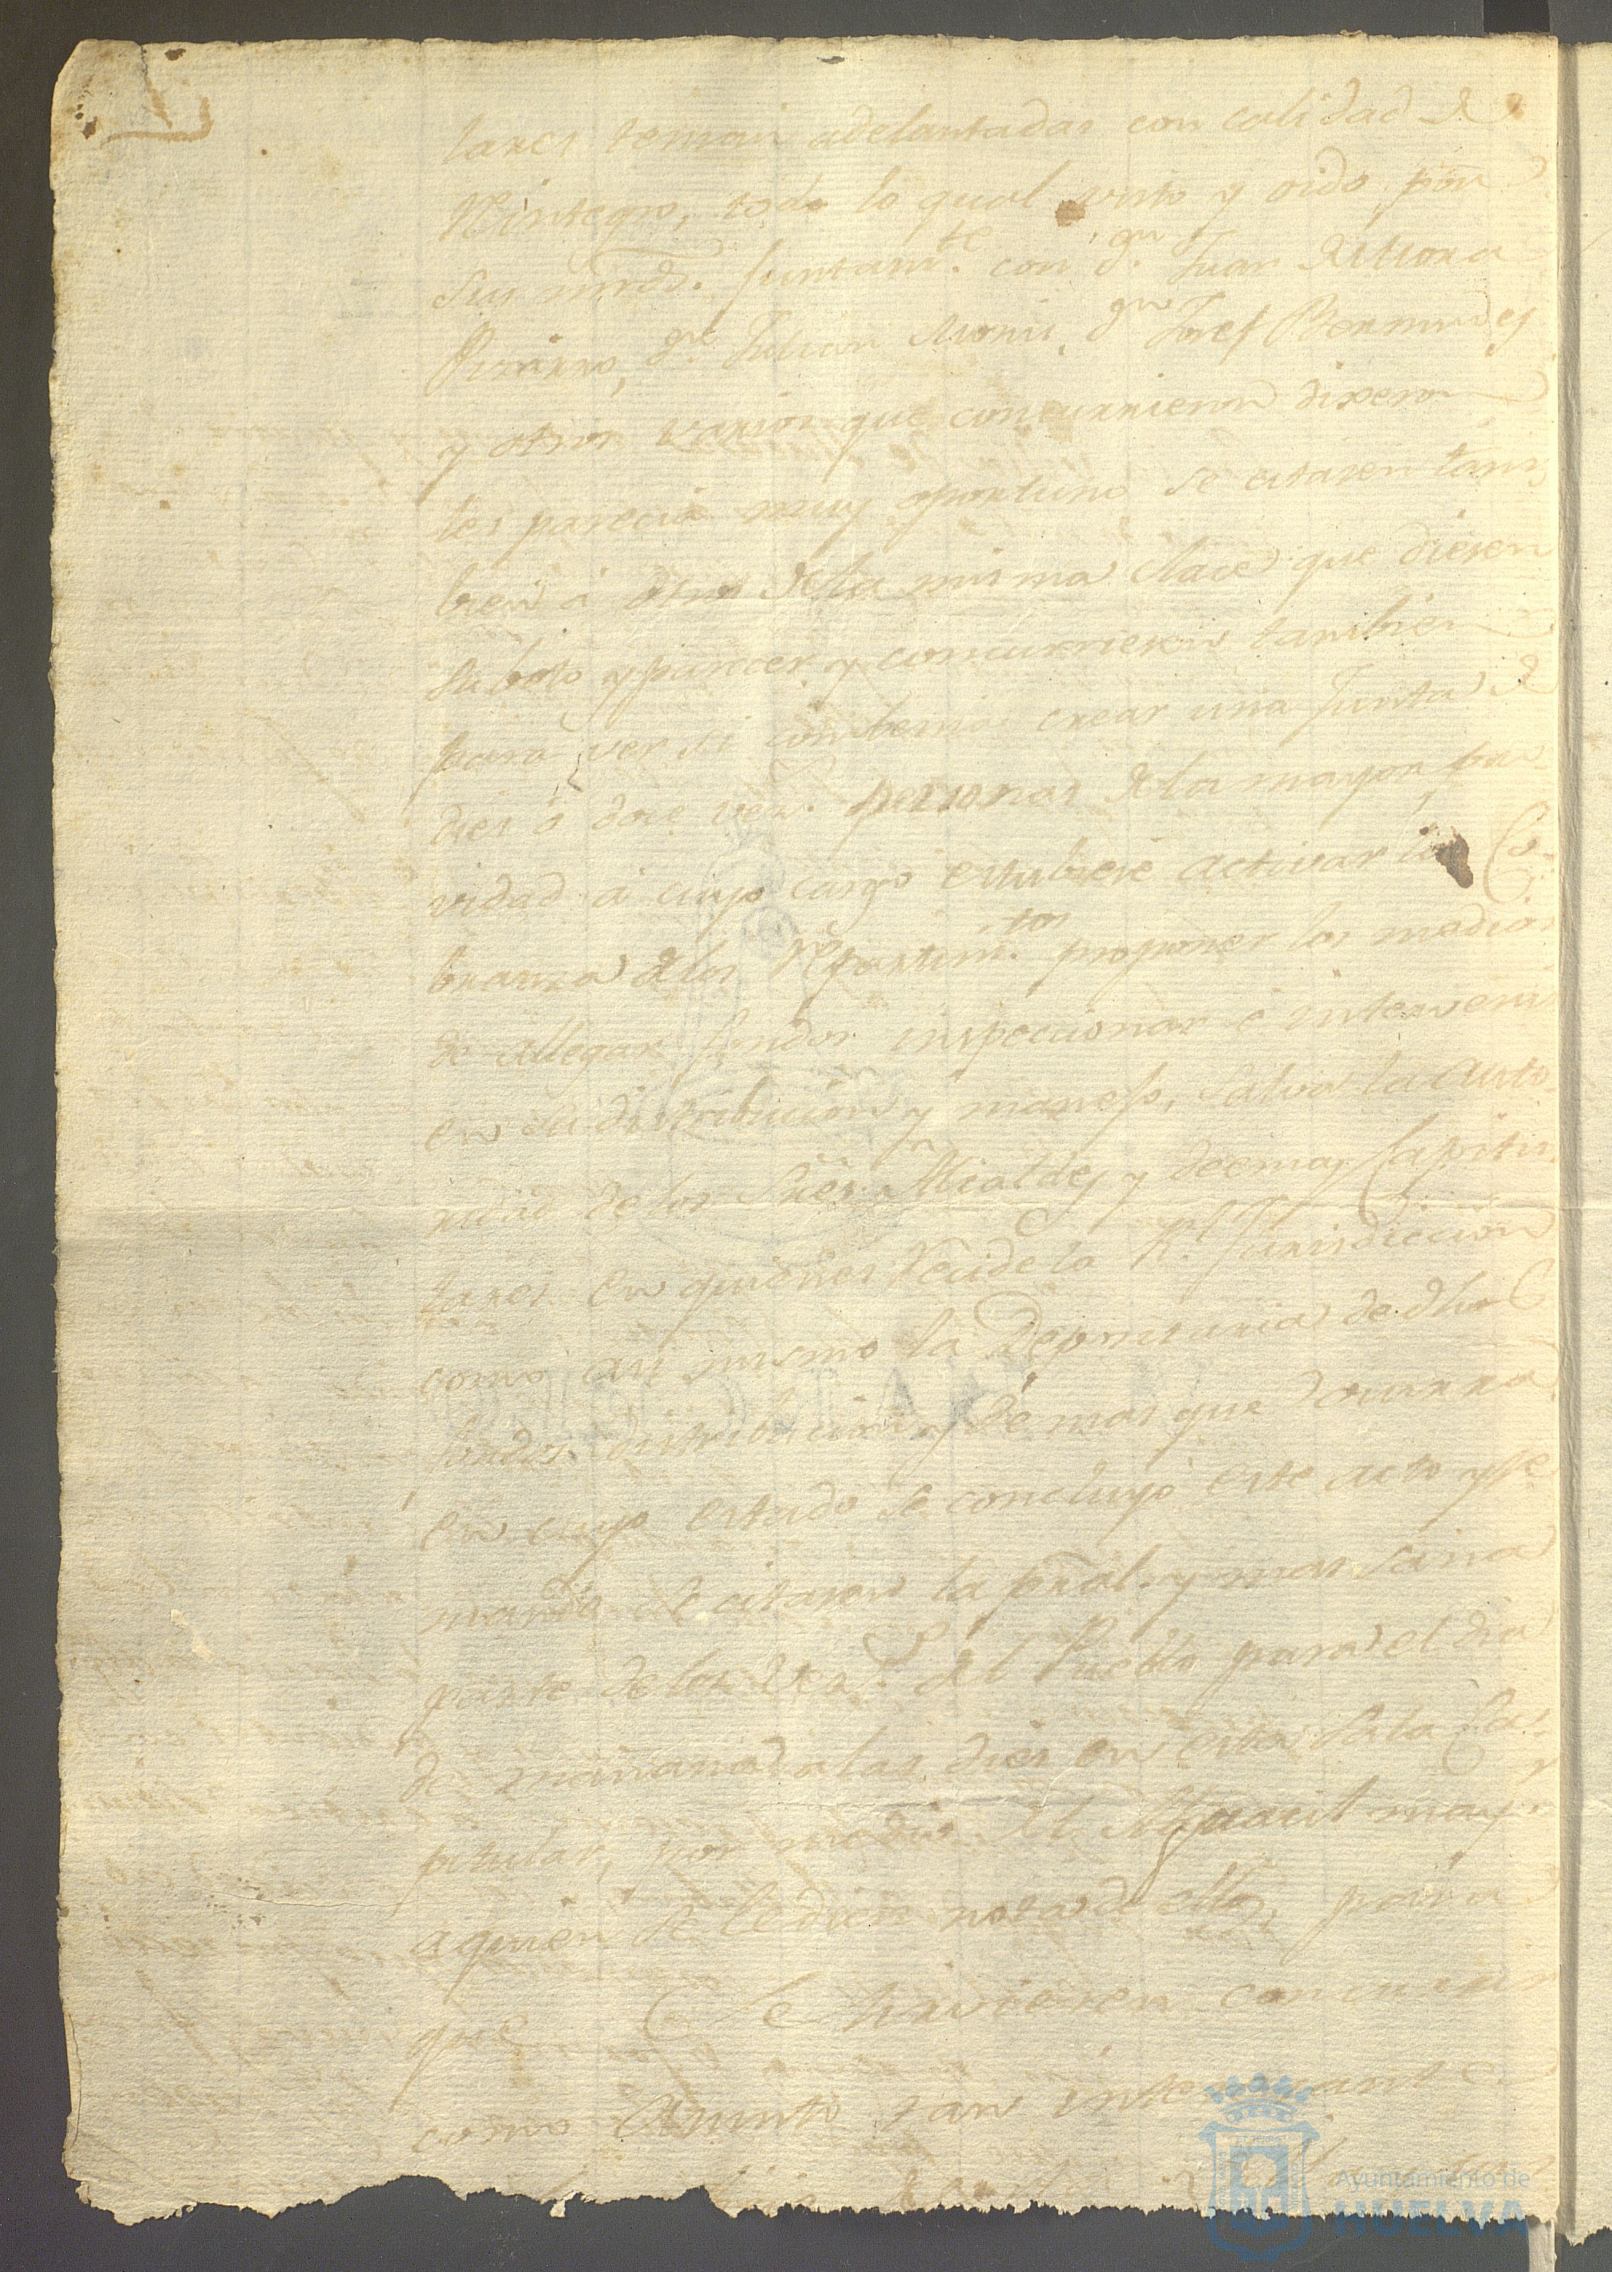 lares tenian adelantadas con calidad de
Reintegro, todo lo qual visto y oido por
sus mrds. juntamte. con dn. Juan de Mora
Pizarro, dn. Julian Monis, dn. Josef Bermudez
y otros varios que concurrieron dixeron
les parecia muy oportuno se citasen tam
bien á otros de la misma clace que diesen
su boto y parecer y concurriesen tambien
para ver si combenia crear una Junta de
dies ó doce vens. personas de la mayor pro
vidad á cuyo cargo estubiese activar la Co
branza de los Repartimtos. proponer los medios
de allegar fondos inspeccionar é intervenir
en su distribucion y manejo, salva la auto
ridad de los Sres. Alcaldes y demas Capitu
lares en quienes recide la Rl. Jurisdiccion
como asi mismo la Depocitaria de dhos
fondos distribucion y demas que ocurra
en cuyo estado se concluyó este acto y se
mandó se citasen la pral. y mas sana
parte de los Vens. del Pueblo para el dia
de mañana a las dies en esta Sala Ca
pitular, por medio del Alguacil mayr.
a quien se le dies nota de ellos, para
que se hiciesen concurrir
como asunto tan interesante
Ayuntamiento de
HUELVA